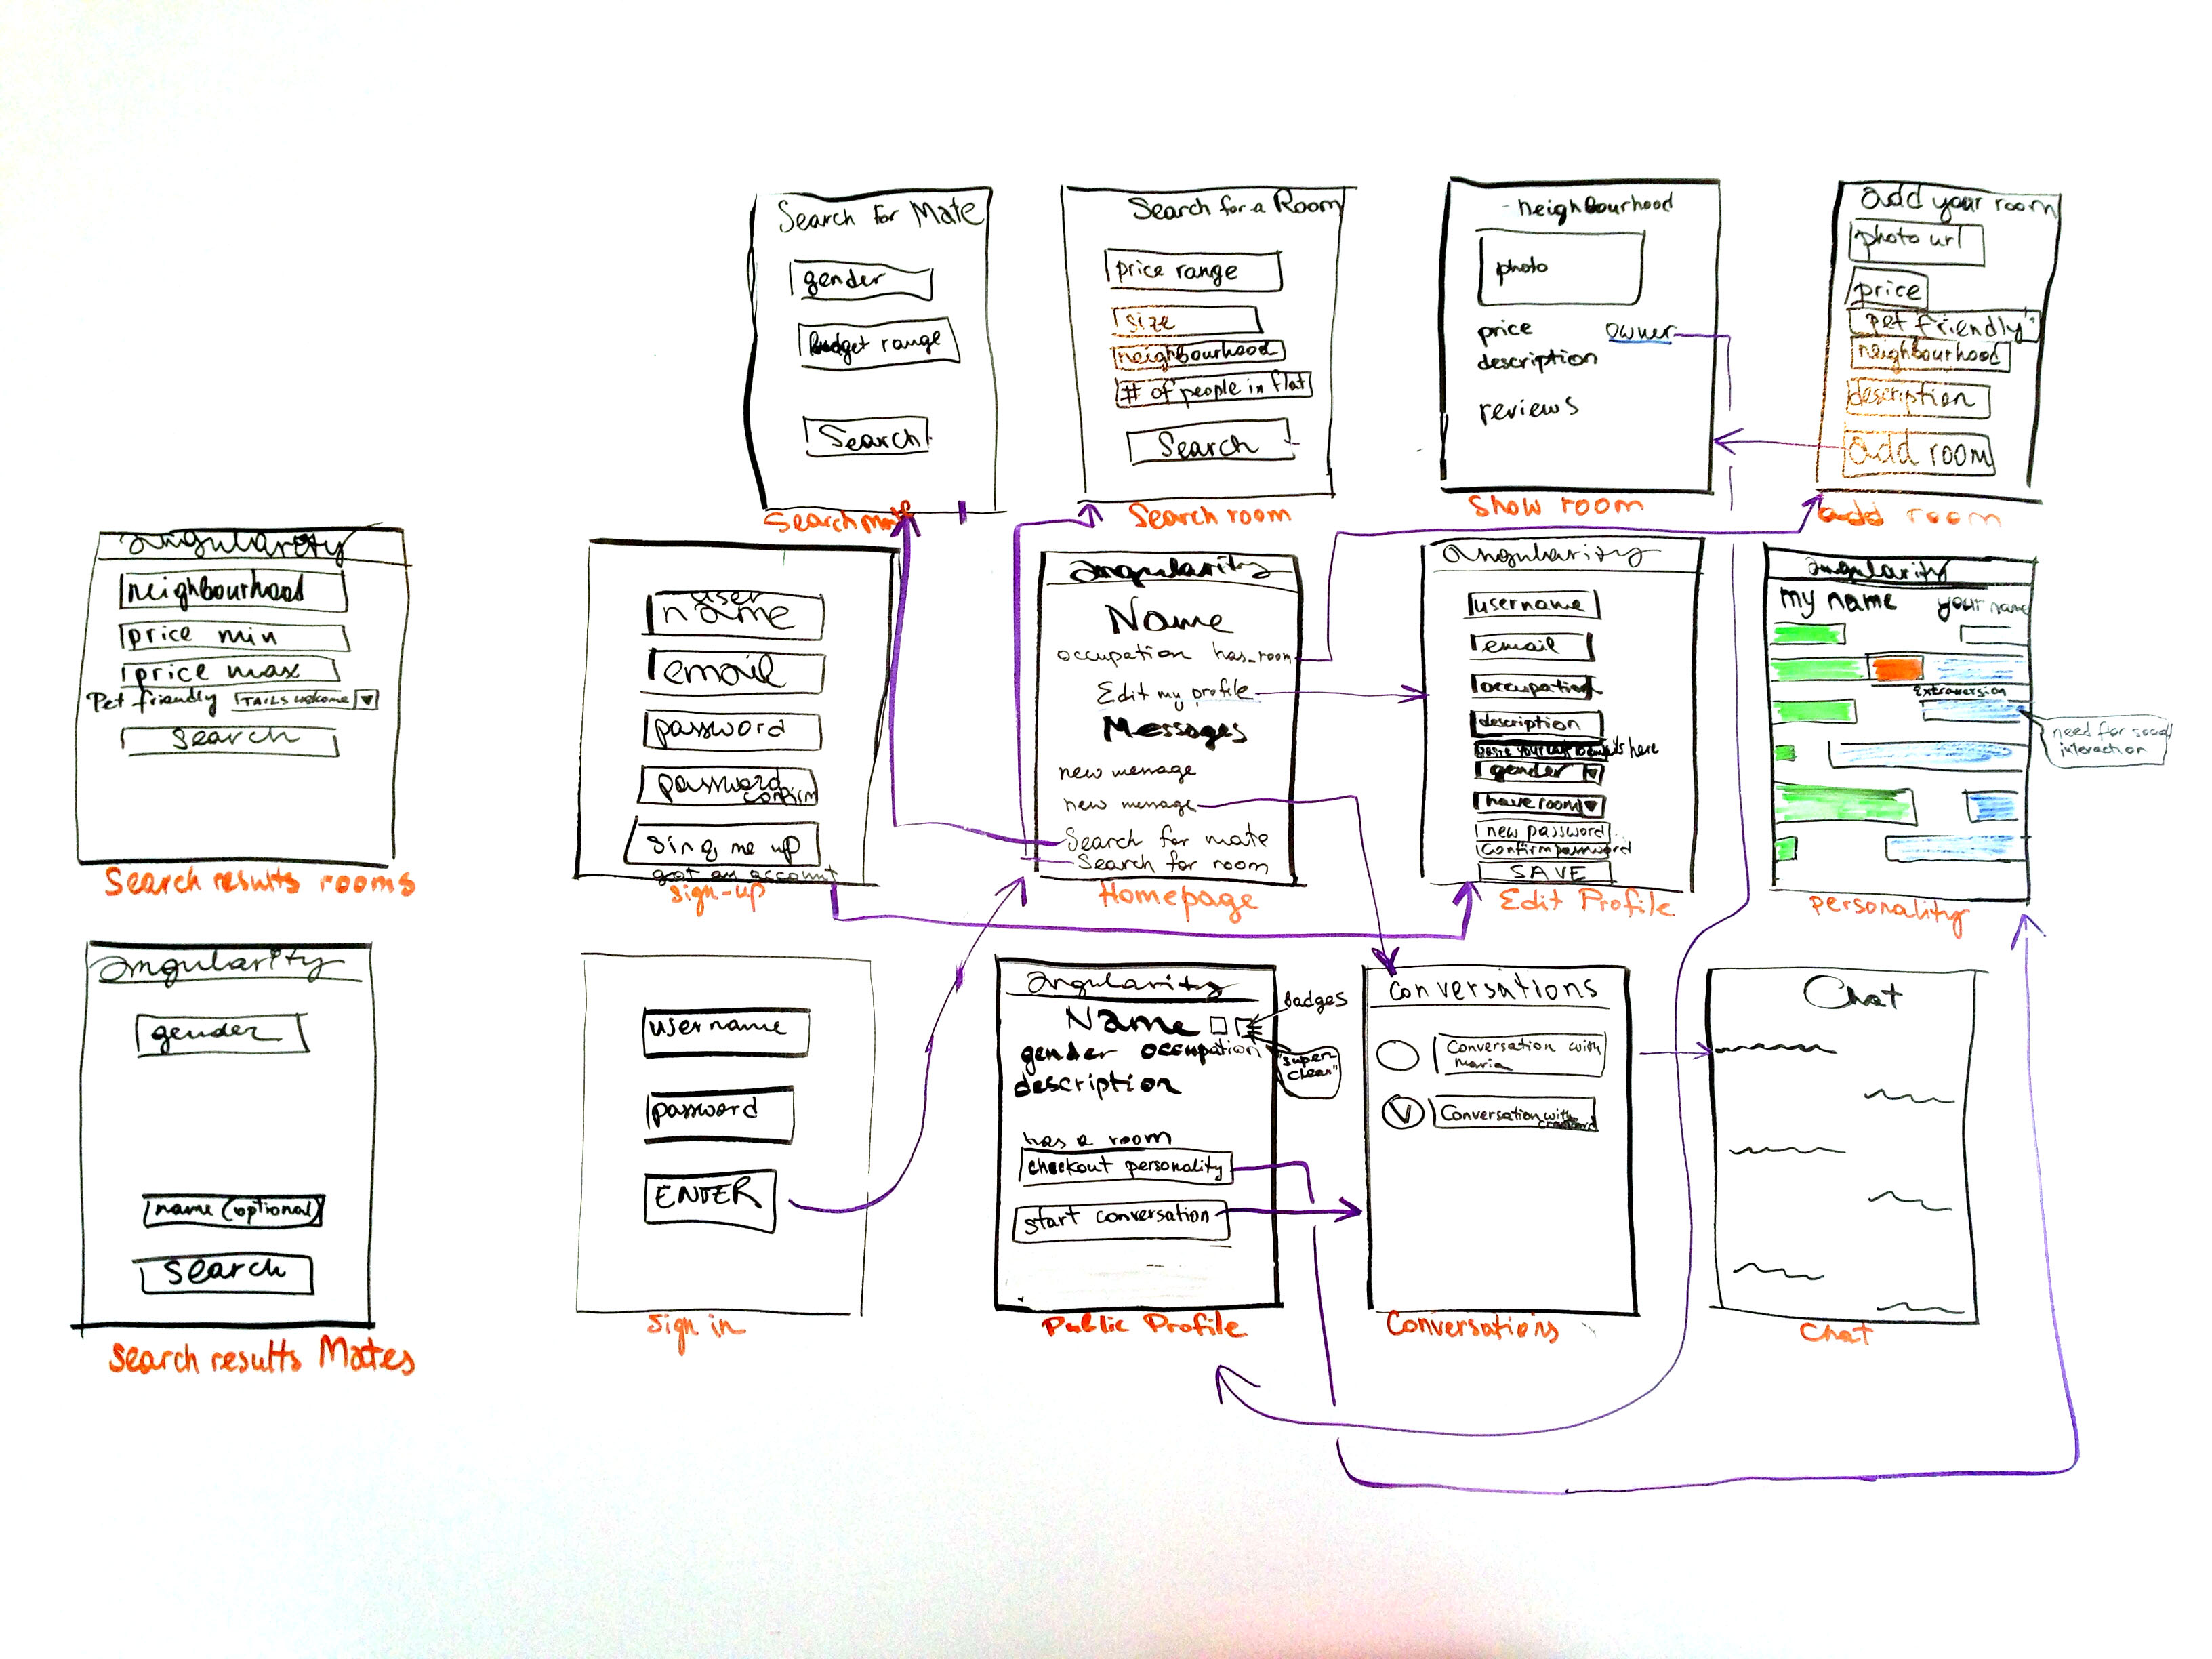 Search for Mate
gender
Budget range
Search
Search mate
Search for a Room
price range
size
neighbourhood
# of people in flat
Search
Search room
neighbourhood
photo
price owner
description
reviews
Show room
add your room
photo url
price
"pet friendly"
neighbourhood
description
add room
add room
angularity
neighbourhood
price min
price max
Pet friendly TAILS welcome
search
Search results rooms
user
name
email
password
password
confirm
sing me up
got an account
sign-up
angularity
Name
occupation has_room
Edit my profile
Messages
new message
new message
Search for mate
Search for room
Homepage
angularity
username
email
occupation
description
here
gender
have room
new password
Confirm password
SAVE
Edit Profile
angularity
my name your name
Extraversion
need for social
interaction
personality
angularity
gender
name (optional)
search
Search results Mates
username
password
ENTER
Sign in
angularity
Badges
Name
gender occupation
"super
clean"
description
has a room
checkout personality
start conversation
Public Profile
Conversations
Conversation with
Maria
Conversation with
Conversations
Chat
Chat